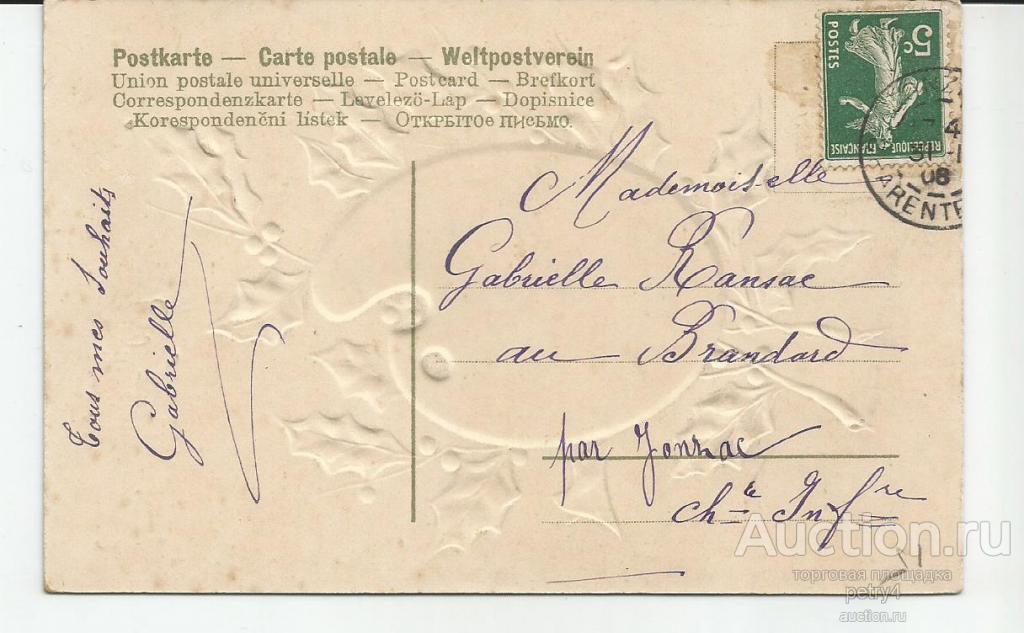 Postkarte — Carte postale — Weltpostverein
Union postale universelle — Postcard — Brefkort
Correspondenzkarte — Levelezö-Lap — Dopisnice
Korespondenční lístek — Открытое письмо.
5c
POSTES
REPUBLIQUE FRANÇAISE
4
31-1
08
Tous mes Souhaits
Gabrielle
Mademoiselle
Gabrielle Ransac
au Brandard
par Jonzac
chte Infre
Auction.ru
торговая площадка
petry4
auction.ru